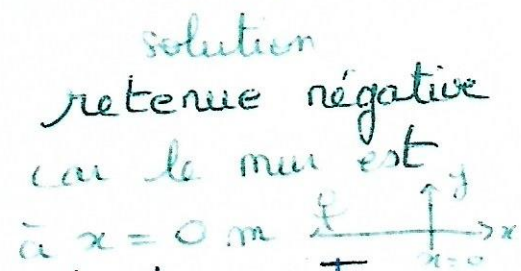 solution
retenue négative
car le mur est
à x = 0 m
y
x
x=0